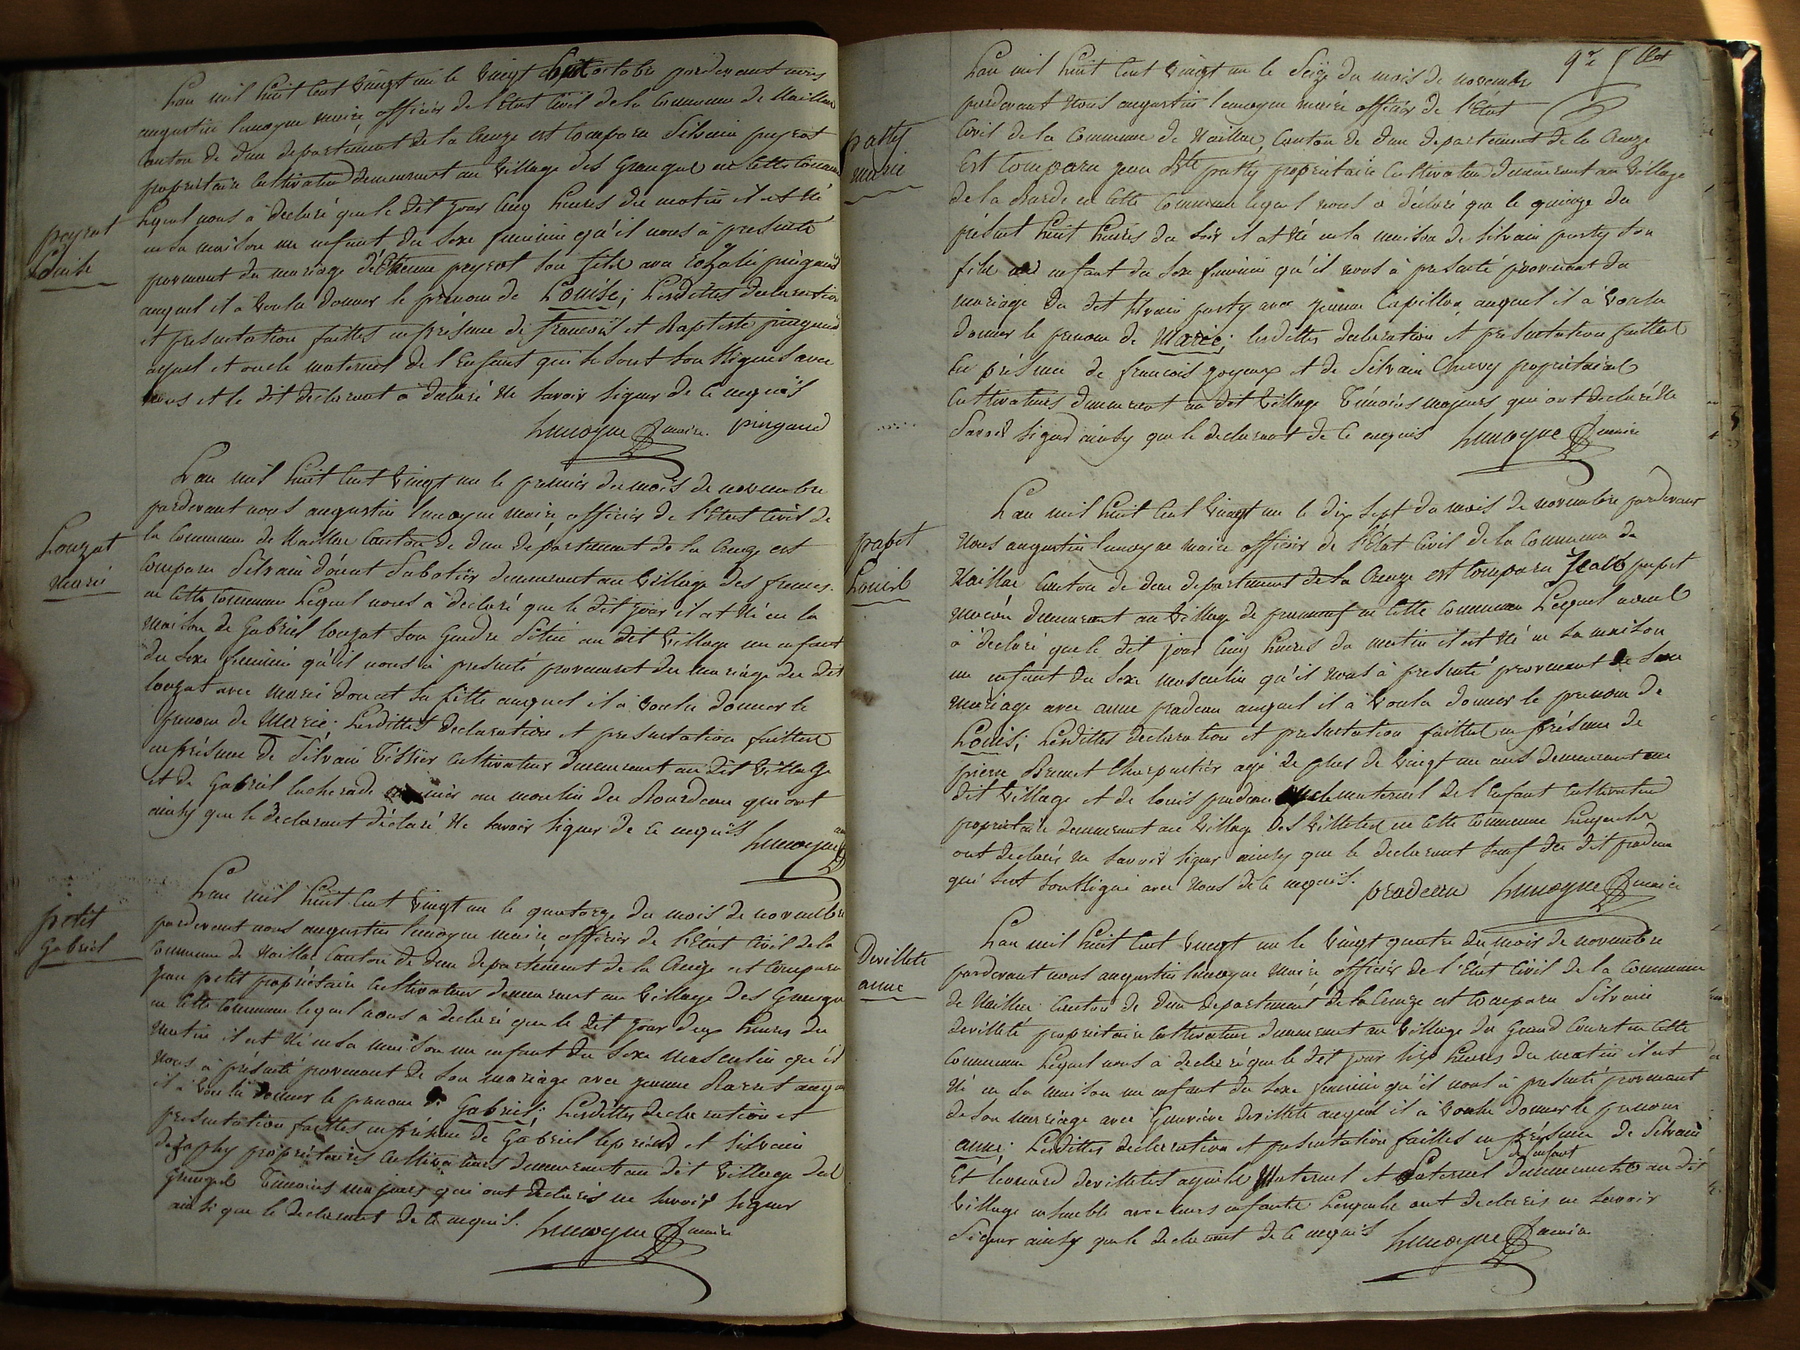 Lan mil huit cent vingt un le vingt huit octobre pardevant nous
augustin lemoyne maire officier de l'Etat Civil de la Commune de Naillac
Canton de dun departement de la Creuze est Comparu Silvain peyrot
propriétaire Cultivateur demeurant au Village des Granges en Cette Commune
Lequel nous à declaré que le dit jour Cinq heures du matin il est né
en sa maison un enfant du Sexe feminin qu'il nous à presenté
peyrot
Louise
provenant du mariage de Etienne peyrot son fils avec pingaud
auquel il à voulu donner le prénom de Louise; Lesdittes declaration
et presentation faittes en présence de francois et Baptiste pingaud
ayeul et oncle maternel de l'Enfant qui Se sont Soussignés avec
nous et le dit declarant à declaré Ne Savoir Signer de Ce enquis
Lemoyne maire pingaud
Lan mil huit Cent vingt un le premier du mois de novembre
pardevant nous augustin lemoyne maire officier de l'Etat Civil de
la Commune de Naillac Canton de dun departement de la Creuze est
Louzat
Marie
Comparu Silvain Sabotier demeurant au Village des
en Cette Commune Lequel nous à declaré que le dit jour il est né en la
maison de Gabriel louzat Son Gendre Situé au dit Village un enfant
du Sexe feminin qu'il nous à presenté provenant du mariage du dit
louzat avec Marie sa fille auquel il à voulu donner le
prenom de Marie. Lesdittes declaration et presentation faittes
en présence de Silvain Cultivateur demeurant au dit Village
et de Gabriel au moulin du Bourdeau qui ont
ainsy que le declarant déclaré Ne Savoir Signer de Ce enquis Lemoyne
Lan mil huit Cent vingt un le quatorze du mois de novembre
petit
Gabriel
pardevant nous augustin lemoyne maire officier de l'Etat Civil de la
Commune de Naillac Canton de dun departement de la Creuze est Comparu
jean petit propriétaire Cultivateur demeurant au Village des Granges
en Cette Commune lequel nous à declaré que le dit jour deux heures du
matin il est né en sa maison un enfant du Sexe masculin qu'il
nous à présenté provenant de Son mariage avec jeanne auquel
il à voulu donner le prenom de Gabriel; Lesdittes declaration et
presentation faittes en présence de Gabriel et Silvain
propriétaires Cultivateurs demeurant au dit Village des
Granges Témoins majeurs qui ont declarés ne Savoir Signer
ainsi que le declarant de Ce enquis. Lemoyne maire
9e fllet
Lan mil huit Cent Vingt un le Seize du mois de novembre
pardevant Nous augustin lemoyne maire officier de l'Etat
patty
marie
Civil de la Commune de Naillac, Canton de dun departement de la Creuze
Est Comparu jean Bte patty propriétaire Cultivateur demeurant au Village
de la Barde en Cette Commune lequel nous a déclaré que le quinze du
présent huit heures du Soir il est né en la maison de Silvain patty Son
fils un enfant du Sexe feminin qu'il nous à presenté provenant du
mariage du dit Silvain patty avec jeanne auquel il à voulu
donner le prenom de Marie; lesdittes declaration et presentation faittes
En présence de francois et de Silvain Chervy propriétaires
Cultivateurs demeurant au dit Village Témoins majeurs qui ont declaré Ne
Savoir Signer ainsy que le declarant de Ce enquis Lemoyne maire
Lan mil huit Cent vingt un le dix Sept du mois de novembre pardevant
papet
Louis
Nous augustin lemoyne maire officier de l'Etat Civil de la Commune de
Naillac Canton de dun departement de la Creuze est Comparu papet
maçon demeurant au Village de en Cette Commune Lequel nous
à declaré que le dit jour Cinq heures du matin il est né en Sa maison
un enfant du Sexe masculin qu'il nous à presenté provenant de Son
mariage avec anne pradeau auquel il à voulu donner le prenom de
Louis; Lesdittes declaration et presentation faittes en présence de
pierre Brunet Charpentier agé de plus de vingt un ans demeurant au
dit Village et de louis pradeau oncle maternel de l'Enfant Cultivateur
propriétaire demeurant au Village des Villettes en Cette Commune Lesquels
ont declarés ne Savoir Signer ainsy que le declarant Sauf du dit pradeau
qui Sest Soussigné avec Nous de Ce enquis. pradeau Lemoyne maire
Devillete
anne
Lan mil huit Cent vingt un le vingt quatre du mois de novembre
pardevant nous augustin lemoyne maire officier de l'Etat Civil de la Commune
de Naillac Canton de dun departement de la Creuze est Comparu Silvain
devillete propriétaire Cultivateur demeurant au Village du Grand Court en Cette
Commune Lequel nous à declaré que le dit jour Six heures du matin il est
né en Sa maison un enfant du Sexe feminin qu'il nous à presenté provenant
de Son mariage avec Genevieve devillete auquel il à voulu donner le prenom
anne; Lesdittes declaration et presentation faittes en présence de Silvain
de l'enfant
Et leonard devilletes ayeuls Maternel et Paternel demeurants au dit
Village ensemble avec leurs enfants Lesquels ont declarés ne Savoir
Signer ainsy que le declarant de Ce enquis Lemoyne maire